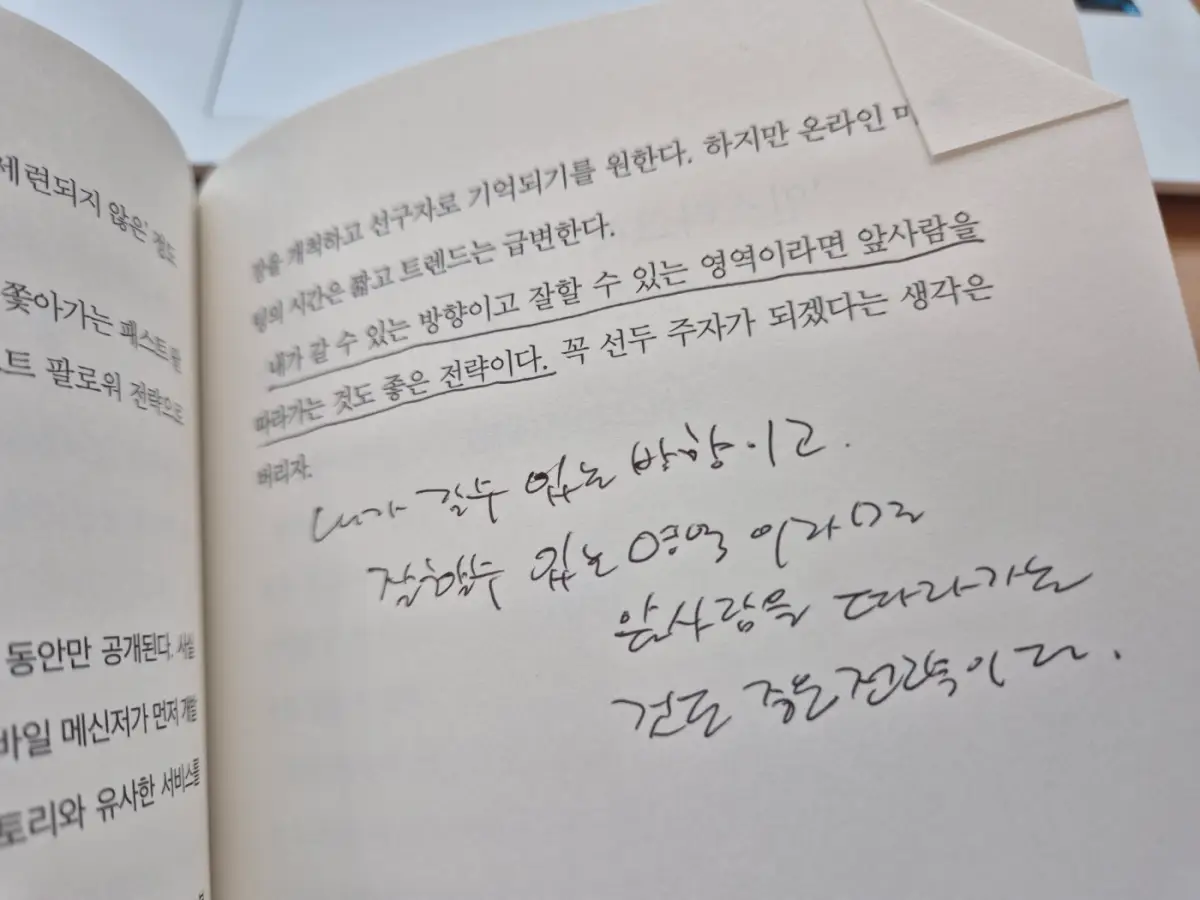 세련되지 않은 정도
쫓아기는 패스트 팔
트 팔로워 전략으로
동안만 공개된다. 사실
바일 메신저가 먼저 개발
토리와 유사한 서비스를
장을 개척하고 선구자로 기억되기를 원한다. 하지만 온라인 마
팅의 시간은 짧고 트렌드는 급변한다.
내가 갈 수 있는 방향이고 잘할 수 있는 영역이라면 앞사람을
따라가는 것도 좋은 전략이다. 꼭 선두 주자가 되겠다는 생각은
버리자.
내가 갈수 있는 방향이고.
잘할수 있는 영역이라면
앞사람을 따라가는
것도 좋은 전략이다.